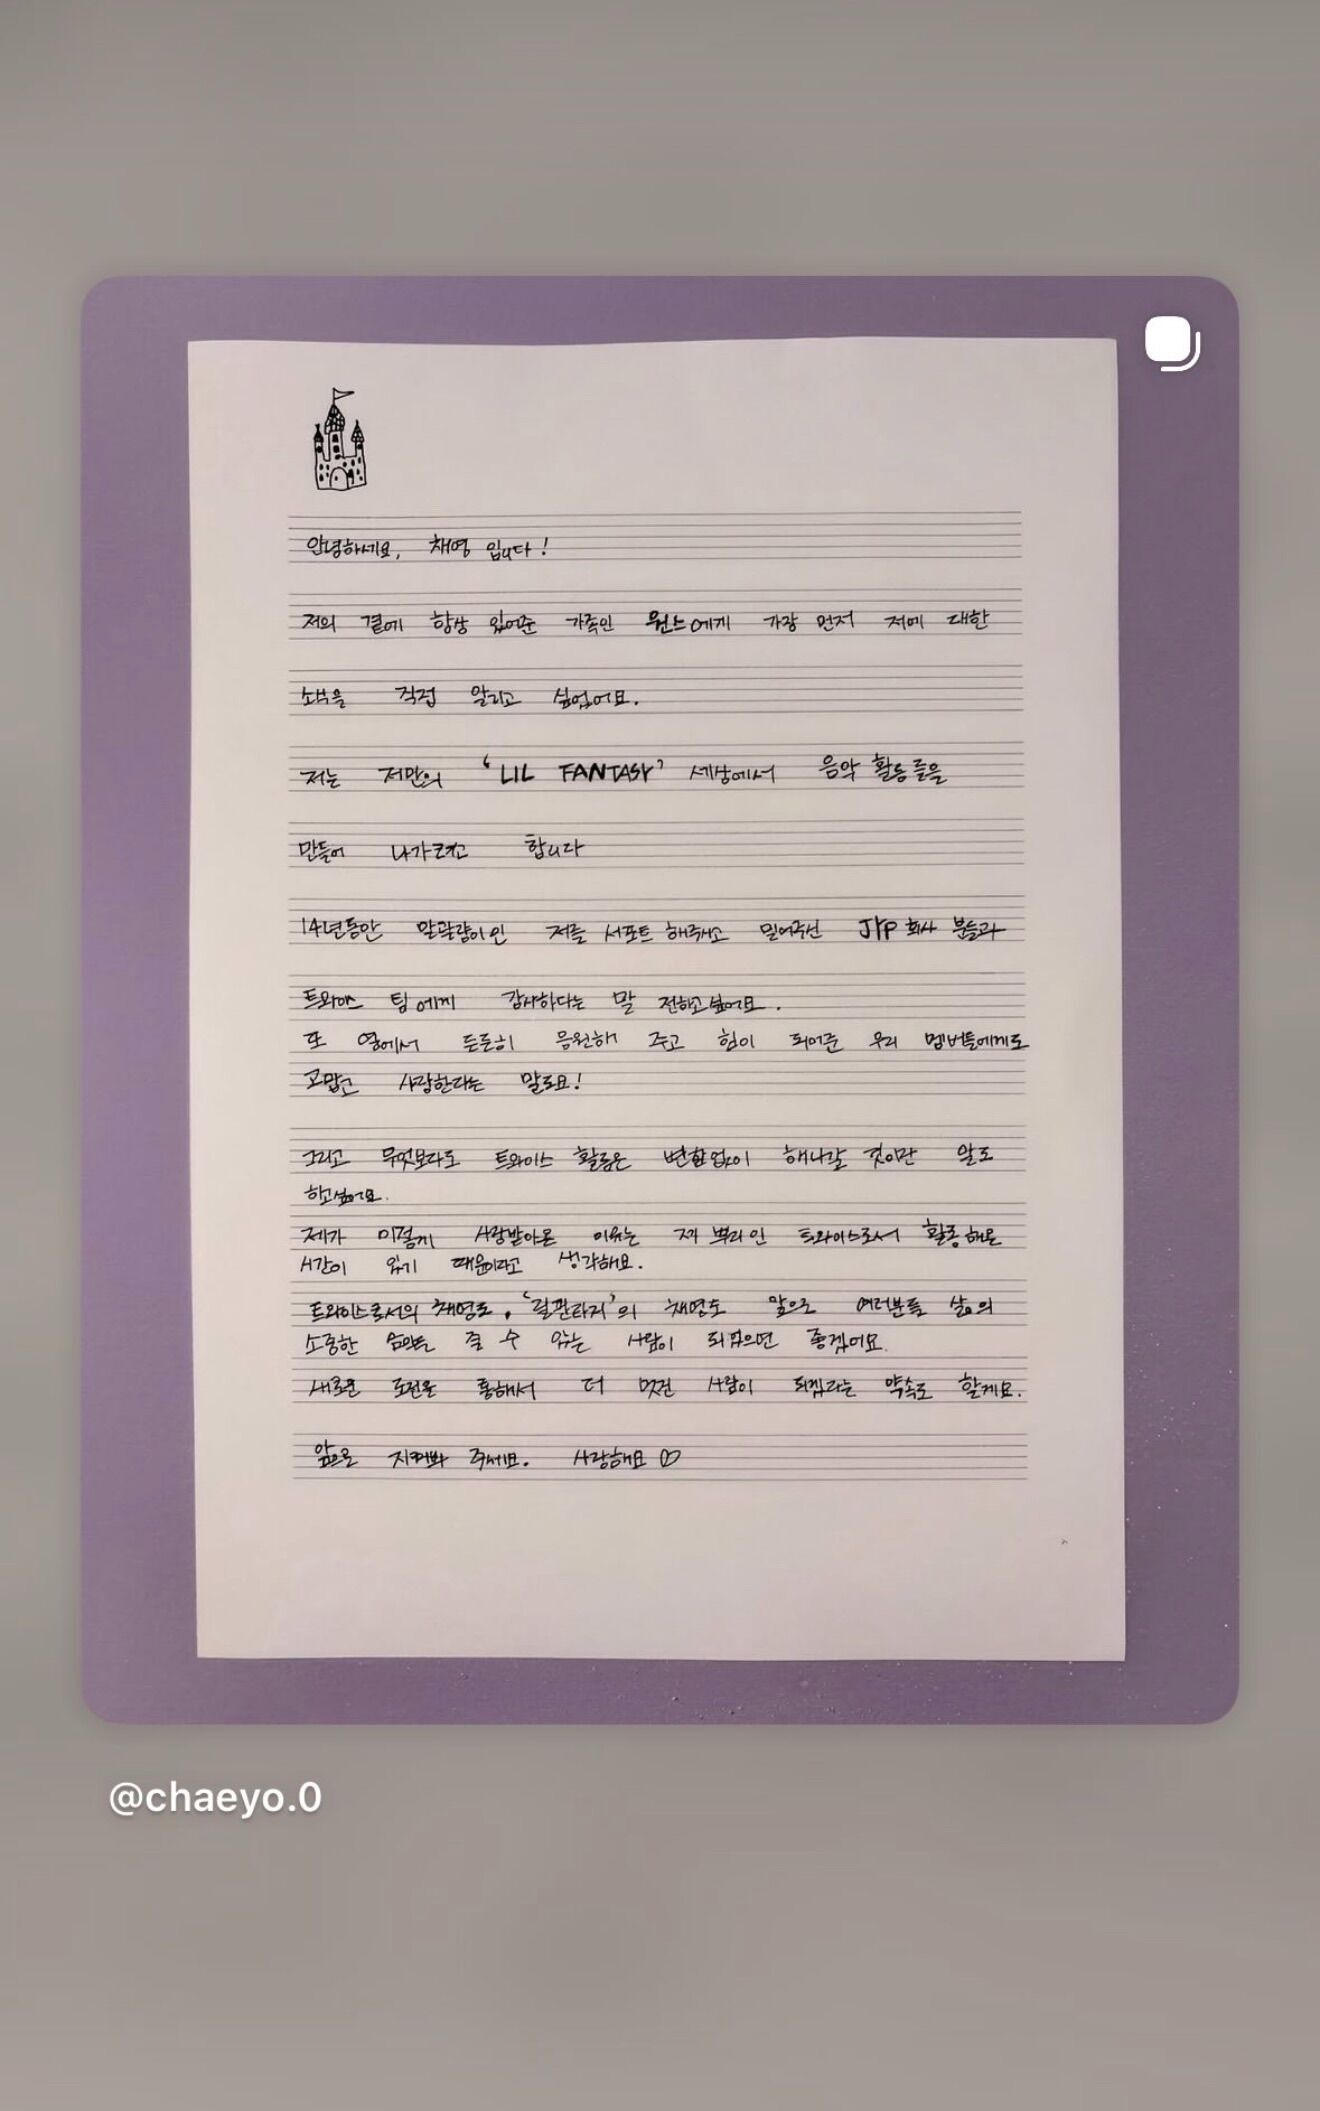 안녕하세요, 채영 입니다!
저의 곁에 항상 있어준 가족인 원스에게 가장 먼저 저에 대한
소식을 직접 알리고 싶었어요.
저는 저만의 'LIL FANTASY' 세상에서 음악 활동들을
만들어 나가려고 합니다
14년동안 말괄량이인 저를 서포트 해주시고 밀어주신 JYP 회사 분들과
트와이스 팀에게 감사하다는 말 전하고싶어요.
또 옆에서 든든히 응원해 주고 힘이 되어준 우리 멤버들에게도
고맙고 사랑한다는 말도요!
그리고 무엇보다도 트와이스 활동은 변함없이 해나갈 것이란 말도
하고싶어요.
제가 이렇게 사랑받아온 이유는 제 뿌리인 트와이스로서 활동해온
시간이 있기 때문이라고 생각해요.
트와이스로서의 채영도, '릴판타지'의 채영도 앞으로 여러분들 삶의
소중한 음악을 줄 수 있는 사람이 되었으면 좋겠어요.
새로운 도전을 통해서 더 멋진 사람이 되겠다는 약속도 할게요.
앞으로 지켜봐 주세요. 사랑해요 ♡
@chaeyo.0